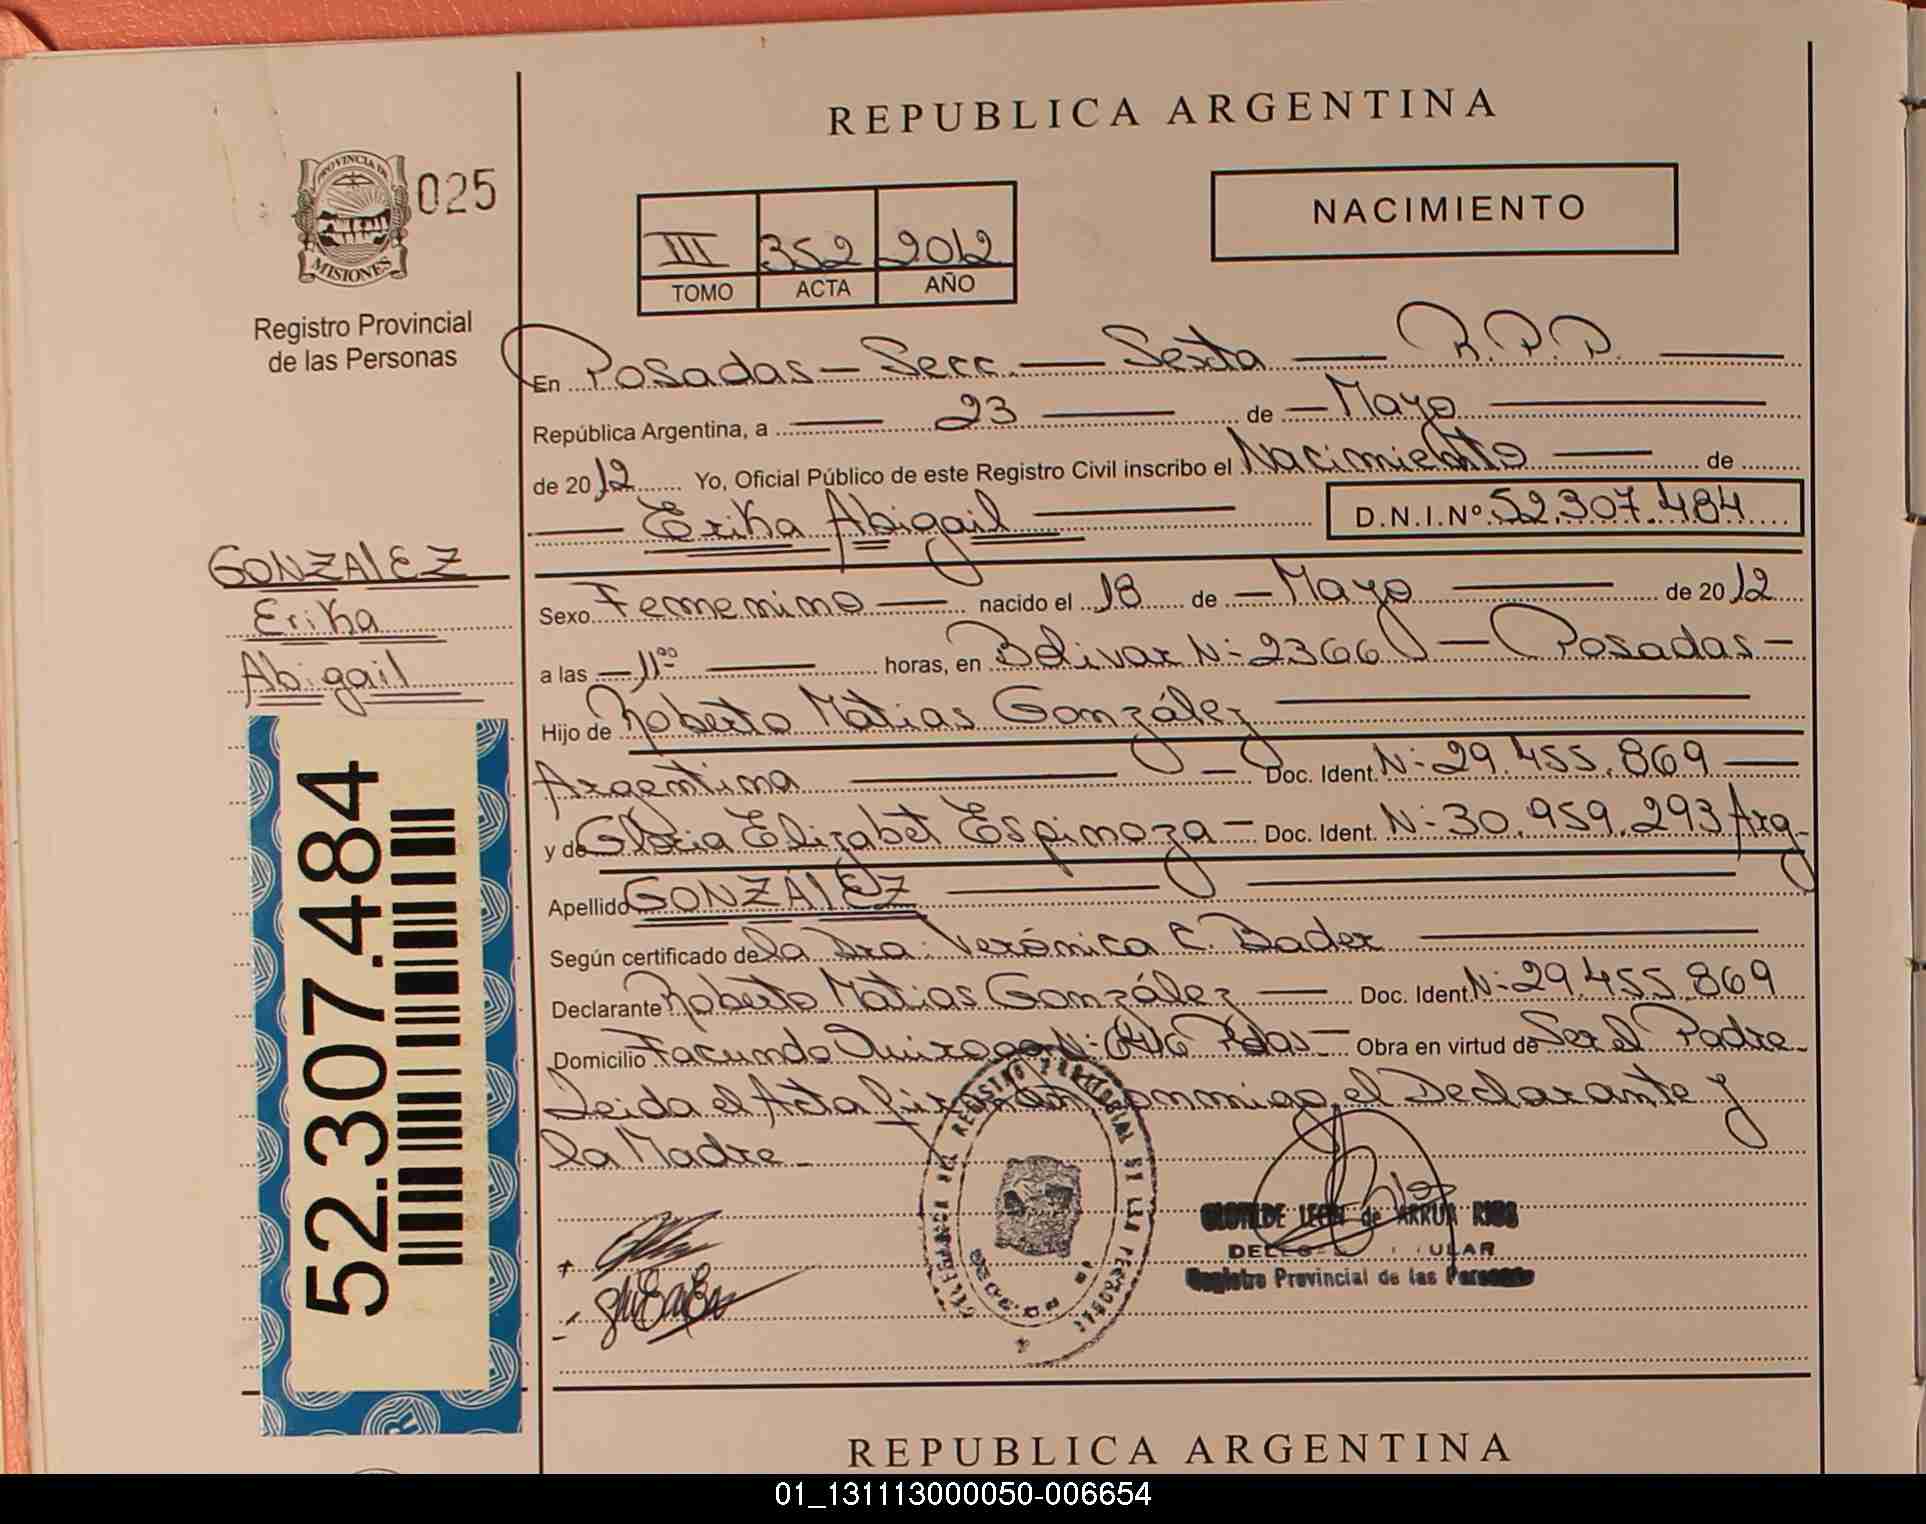 REPUBLICA ARGENTINA
PROVINCIA DE
MISIONES
025
Registro Provincial
de las Personas
NACIMIENTO
III 352 2012
TOMO ACTA AÑO
En Posadas - Secc. — Sexta — R.P.P. —
República Argentina, a — 23 — de — Mayo —
de 2012 Yo, Oficial Público de este Registro Civil inscribo el Nacimiento — de
— Erika Abigail — D.N.I.Nº 52.307.484
GONZALEZ
Erika
Abigail
52.307.484
Sexo Femenino — nacido el 18 de — Mayo — de 2012
a las — 11 00 — horas, en Bolivar Nº 2366 — Posadas -
Hijo de Roberto Matias González —
Argentina — Doc. Ident. Nº 29.455.869 —
y de Gloria Elizabet Espinoza - Doc. Ident. Nº 30.959.293 Arg-
Apellido GONZÁLEZ —
Según certificado de la Dra. Verónica C. Bader —
Declarante Roberto Matias González — Doc. Ident. Nº 29.455.869
Domicilio Facundo Quiroga Nº Pdas - Obra en virtud de Ser el Padre -
Leida el Acta firman conmigo, el Declarante y
la Madre -
REGISTRO PROVINCIAL DE LAS PERSONAS
CLOTILDE LEON de ARRUA RIOS
Registro Provincial de las Personas
REPUBLICA ARGENTINA
01_131113000050-006654